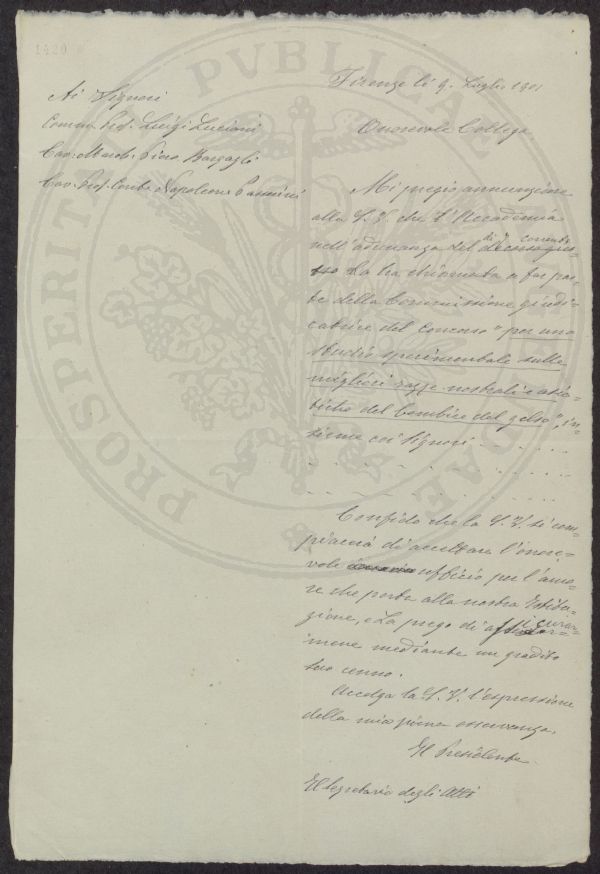 1420
Firenze li 9. Luglio 1901
Ai Signori
Comm. Prof. Luigi Luciani
Cav. March. Piero Bargagli
Cav. Prof. Conte Napoleone Passerini
Onorevole Collega
Mi pregio annunziare
alla S.V. che l'Accademia
nell'adunanza del dì 7 corrente
La ha chiamata a far par=
te della Commissione giudi=
catrice del Concorso "per uno
studio sperimentale sulle
migliori razze nostrali e asia=
tiche del bombice del gelso", in=
sieme coi Signori
Confido che la S.V. si com=
piacerà di accettare l'onore=
vole ufficio per l'amo=
re che porta alla nostra Istitu=
zione, e La prego di assicurar=
mene mediante un gradito
suo cenno.
Accolga la S.V. l'espressione
della mia piena osservanza.
Il Presidente
Il Segretario degli Atti
PROSPERITATI PVBLICAE